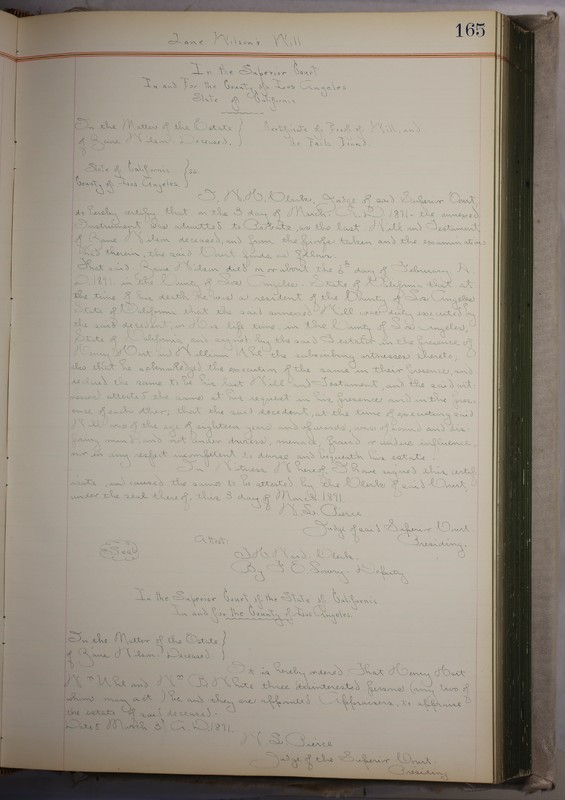 165
Zane Wilson's Will
In the Superior Court
In and For the County of Los Angeles
State of California
In the Matter of the Estate } Certificate of Proof of Will and
of Zane Wilson Deceased. } the Facts Found.
State of California } ss
County of Los Angeles }
I, Judge of said Superior Court,
do hereby certify that on the 3 day of March A.D. 1891 the annexed
Instrument was admitted to Probate, as the last Will and Testament
of Zane Wilson deceased, and from the proofs taken and the examination
had therein, the said Court finds as follows:
That said Zane Wilson died on or about the 6th day of February A.
D. 1891, in the County of Los Angeles, State of California that at
the time of his death he was a resident of the County of Los Angeles
State of California that the said annexed Will was duly executed by
the said decedent in his life time, in the County of Los Angeles,
State of California and signed by the said Testator in the presence of
Henry Hart and William the subscribing witnesses thereto;
also that he acknowledged the execution of the same in their presence, and
declared the same to be his last Will and Testament, and the said wit-
nesses attested the same at his request in his presence and in the pres-
ence of each other; that the said decedent, at the time of executing said
Will was of the age of eighteen years and upwards, was of sound and dis-
posing mind, and not under duress, menace, fraud or undue influence,
nor in any respect incompetent to devise and bequeath his estate.
In Witness Whereof, I have signed this certif-
icate, and caused the same to be attested by the Clerk of said Court
under the seal thereof, this 3 day of March 1891
Pierce
Judge of said Superior Court
Presiding.
Attest:
(Seal) Ward Clerk
By Deputy
In the Superior Court of the State of California
In and for the County of Los Angeles
In the Matter of the Estate }
of Zane Wilson Deceased. }
It is hereby ordered That Henry Hart
Wm and Wm B White three disinterested persons (any two of
whom may act) be and they are appointed Appraisers, to appraise
the estate of said deceased.
Dated March 3d A.D. 1891.
Pierce
Judge of the Superior Court
Presiding